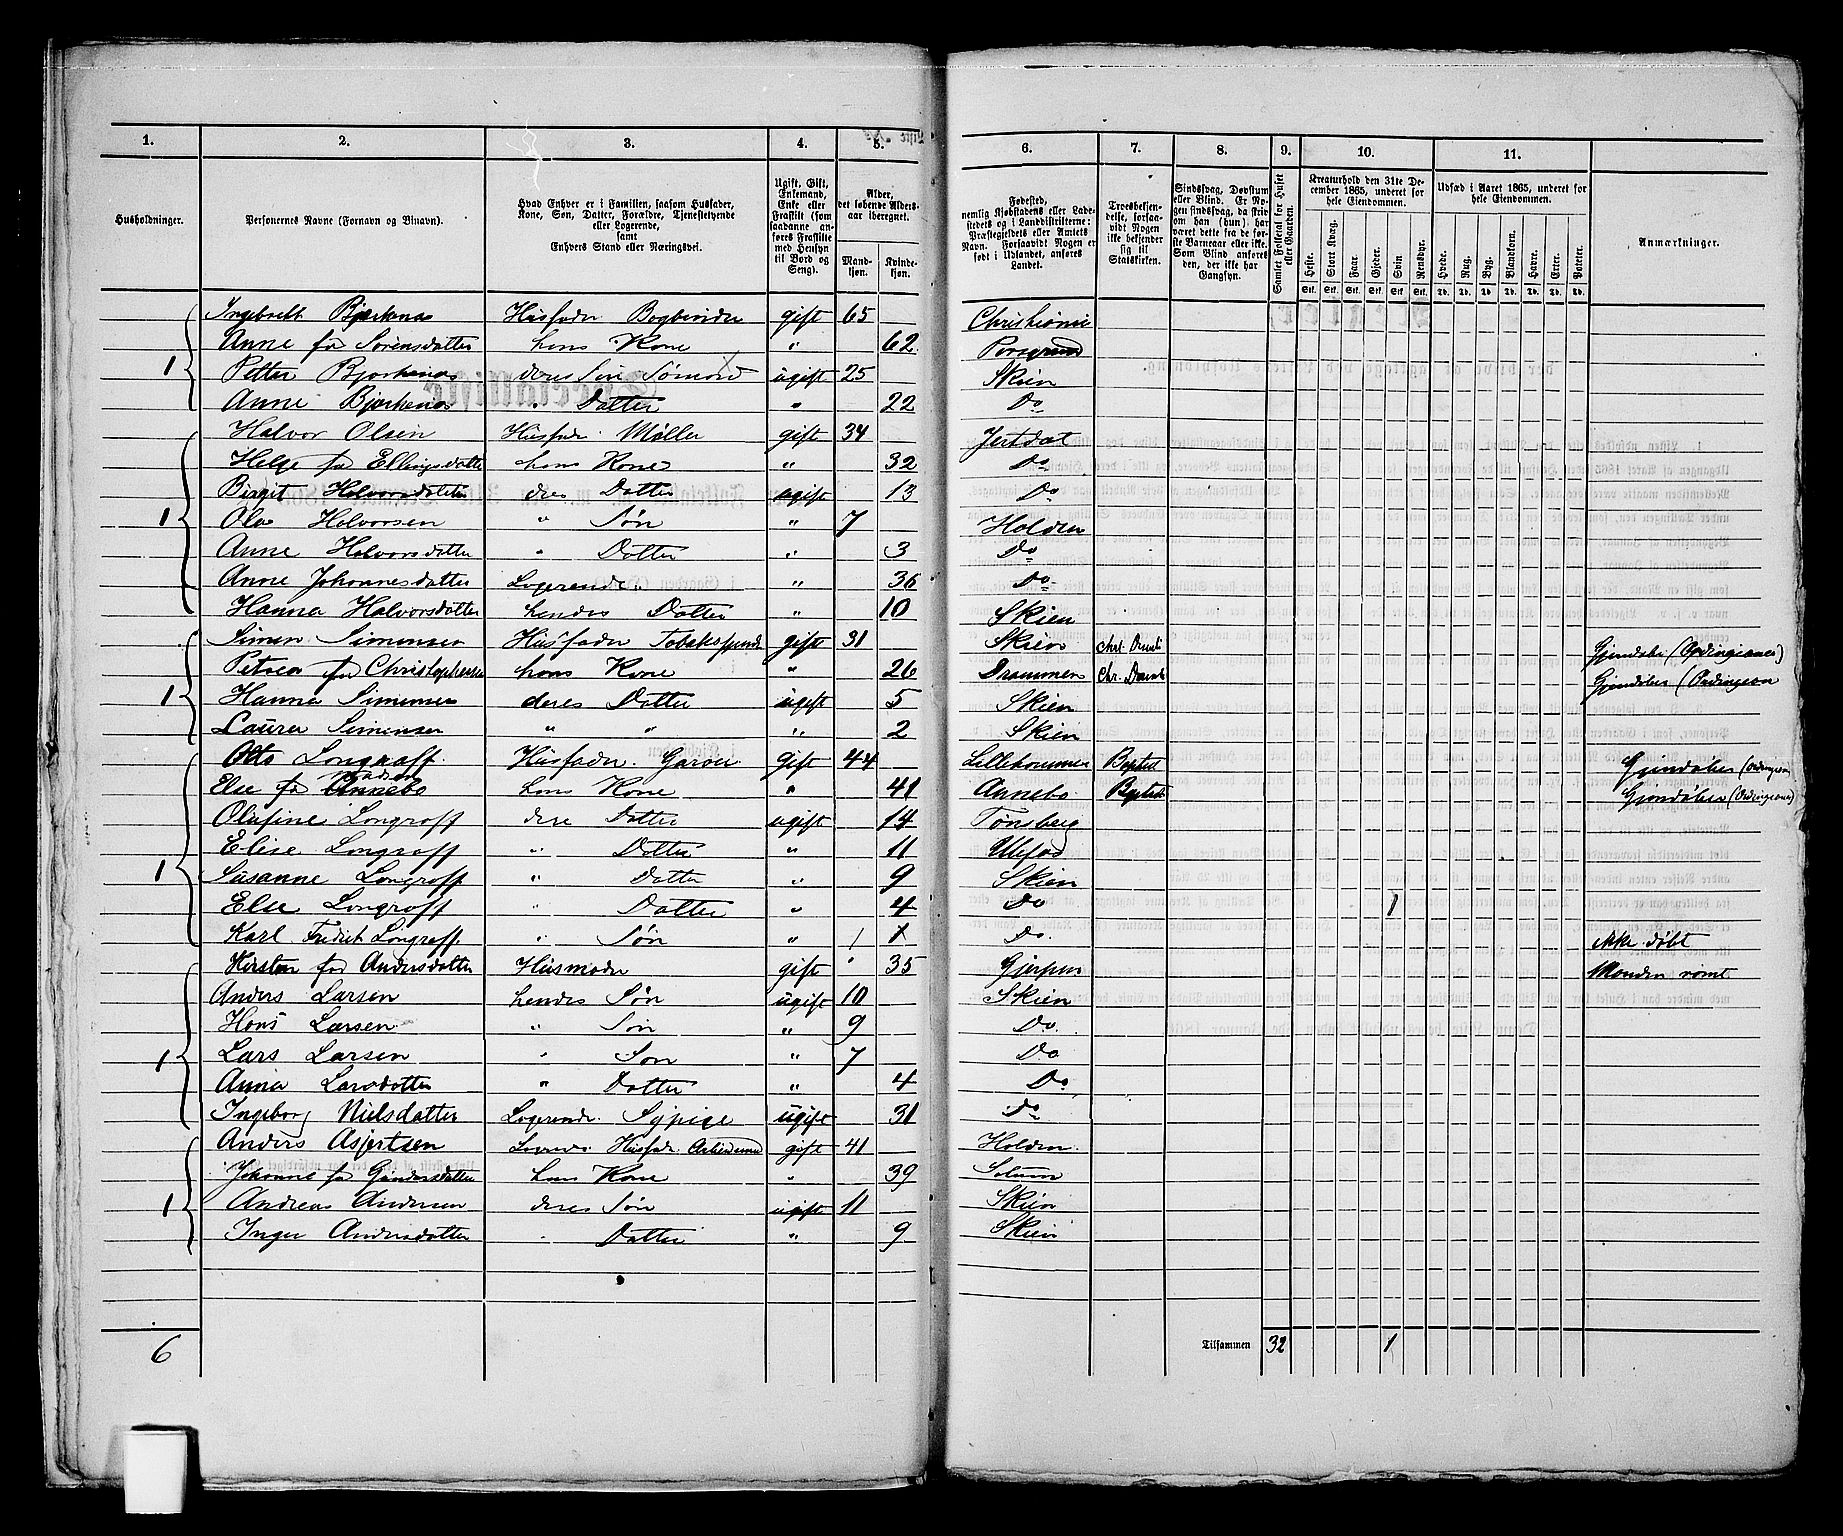 1. 2. 3. 4. 5. 6. 7. 8. 9. 10. 11.
Husholdninger.
Personernes Navne (Fornavn og Binavn).
Hvad Enhver er i Familien, saasom Husfader, Kone, Søn, Datter, Forældre, Tjenestetyende eller Logerende, samt Enhvers Stand eller Næringsvei.
Ugift, Gift, Enkemand, Enke eller Fraskilt (som saadanne anføres Fraskilte med Hensyn til Bord og Seng).
Alder, det løbende Aldersaar iberegnet.
Mandkjøn. Kvindekjøn.
Fødested, nemlig Kjøbstadens eller Ladestedets og i Landdistrikterne: Præstegjeldets eller Amtets Navn. Forsaavidt Nogen er født i Udlandet, anføres Landet.
Troesbekjendelse, forsaavidt Nogen ikke bekjender sig til Statskirken.
Sindssvag, Døvstum eller Blind. Er Nogen sindssvag, da skriv om han (hun) har været dette fra de første Barneaar eller ikke. Som Blind anføres den, der ikke har Gangsyn.
Samlet Folketal for Huset eller Gaarden.
Kreaturhold den 31te December 1865, underet for hele Eiendommen.
Heste. Stort Kvæg. Faar. Gjeder. Svin Rensdyr.
Stk. Stk. Stk. Stk. Stk. Stk.
Udsæd i Aaret 1865, underet for hele Eiendommen.
Hvede. Rug. Byg. Blandkorn. Havre. Erter. Poteter.
Td. Td. Td. Td. Td. Td. Td.
Anmærkninger.
Ingebrett Bjørkenæs Husfader Bogbinder gift 65 Christiania
Anne fø Sørensdatter hans Kone " 62 Porsgrund
1 Petter Bjørkenæs deres Søn Sømand ugift 25 Skien
Anne Bjørkenæs " Datter " 22 Do
Halvor Olsen Husfader Møller gift 34 Jertdal
Helge fø Ellingsdatter hans Kone " 32 Do
Birgit Halvorsdatter deres Datter ugift 13 Do
1 Ole Halvorsen " Søn " 7 Holden
Anne Halvorsdatter " Datter " 3 Do
Anne Johannesdatter Logerende " 36 Do
Hanna Halvorsdatter hendes Datter " 10 Skien
Simen Simensen Husfader Tobakspinder gift 31 Skien Chr. Dissent
Petrea fø Christophersen hans Kone " 26 Drammen Chr. Dissent
1 Hanna Simensen deres Datter ugift 5 Skien
Laura Simensen " " " 2 Skien
Otto Longraff Husfader Garver gift 44 Lillehammer Baptist
Else fø Annebo hans Kone " 41 Annebo Baptist
Olufine Longraff dere Datter ugift 14 Tønsberg
Elise Longraff " Datter " 11 Ulefos
1 Susanne Longraff " Datter " 9 Skien
Else Longraff " Datter " 4 Do 1
Karl Fredrik Longraff " Søn " 1 Do ikke døbt
Kirsten fød Andersdatter Husmoder gift " 35 Gjerpen Manden rømt
Anders Larsen hendes Søn ugift 10 Skien
Hans Larsen " Søn " 9 Do
1 Lars Larsen " Søn " 7 Do
Anna Larsdatter " Datter " 4 Do
Ingeborg Nielsdatter Logerende Sypige ugift 31 Do
Anders Asjertsen Husfader gift 41 Holden
Johanne fø Gundersdatter hans Kone " 39 Solum
1 Andreas Andersen deres Søn ugift 11 Skien
Inger Andersdatter " Datter " 9 Skien
6 Tilsammen 32 1